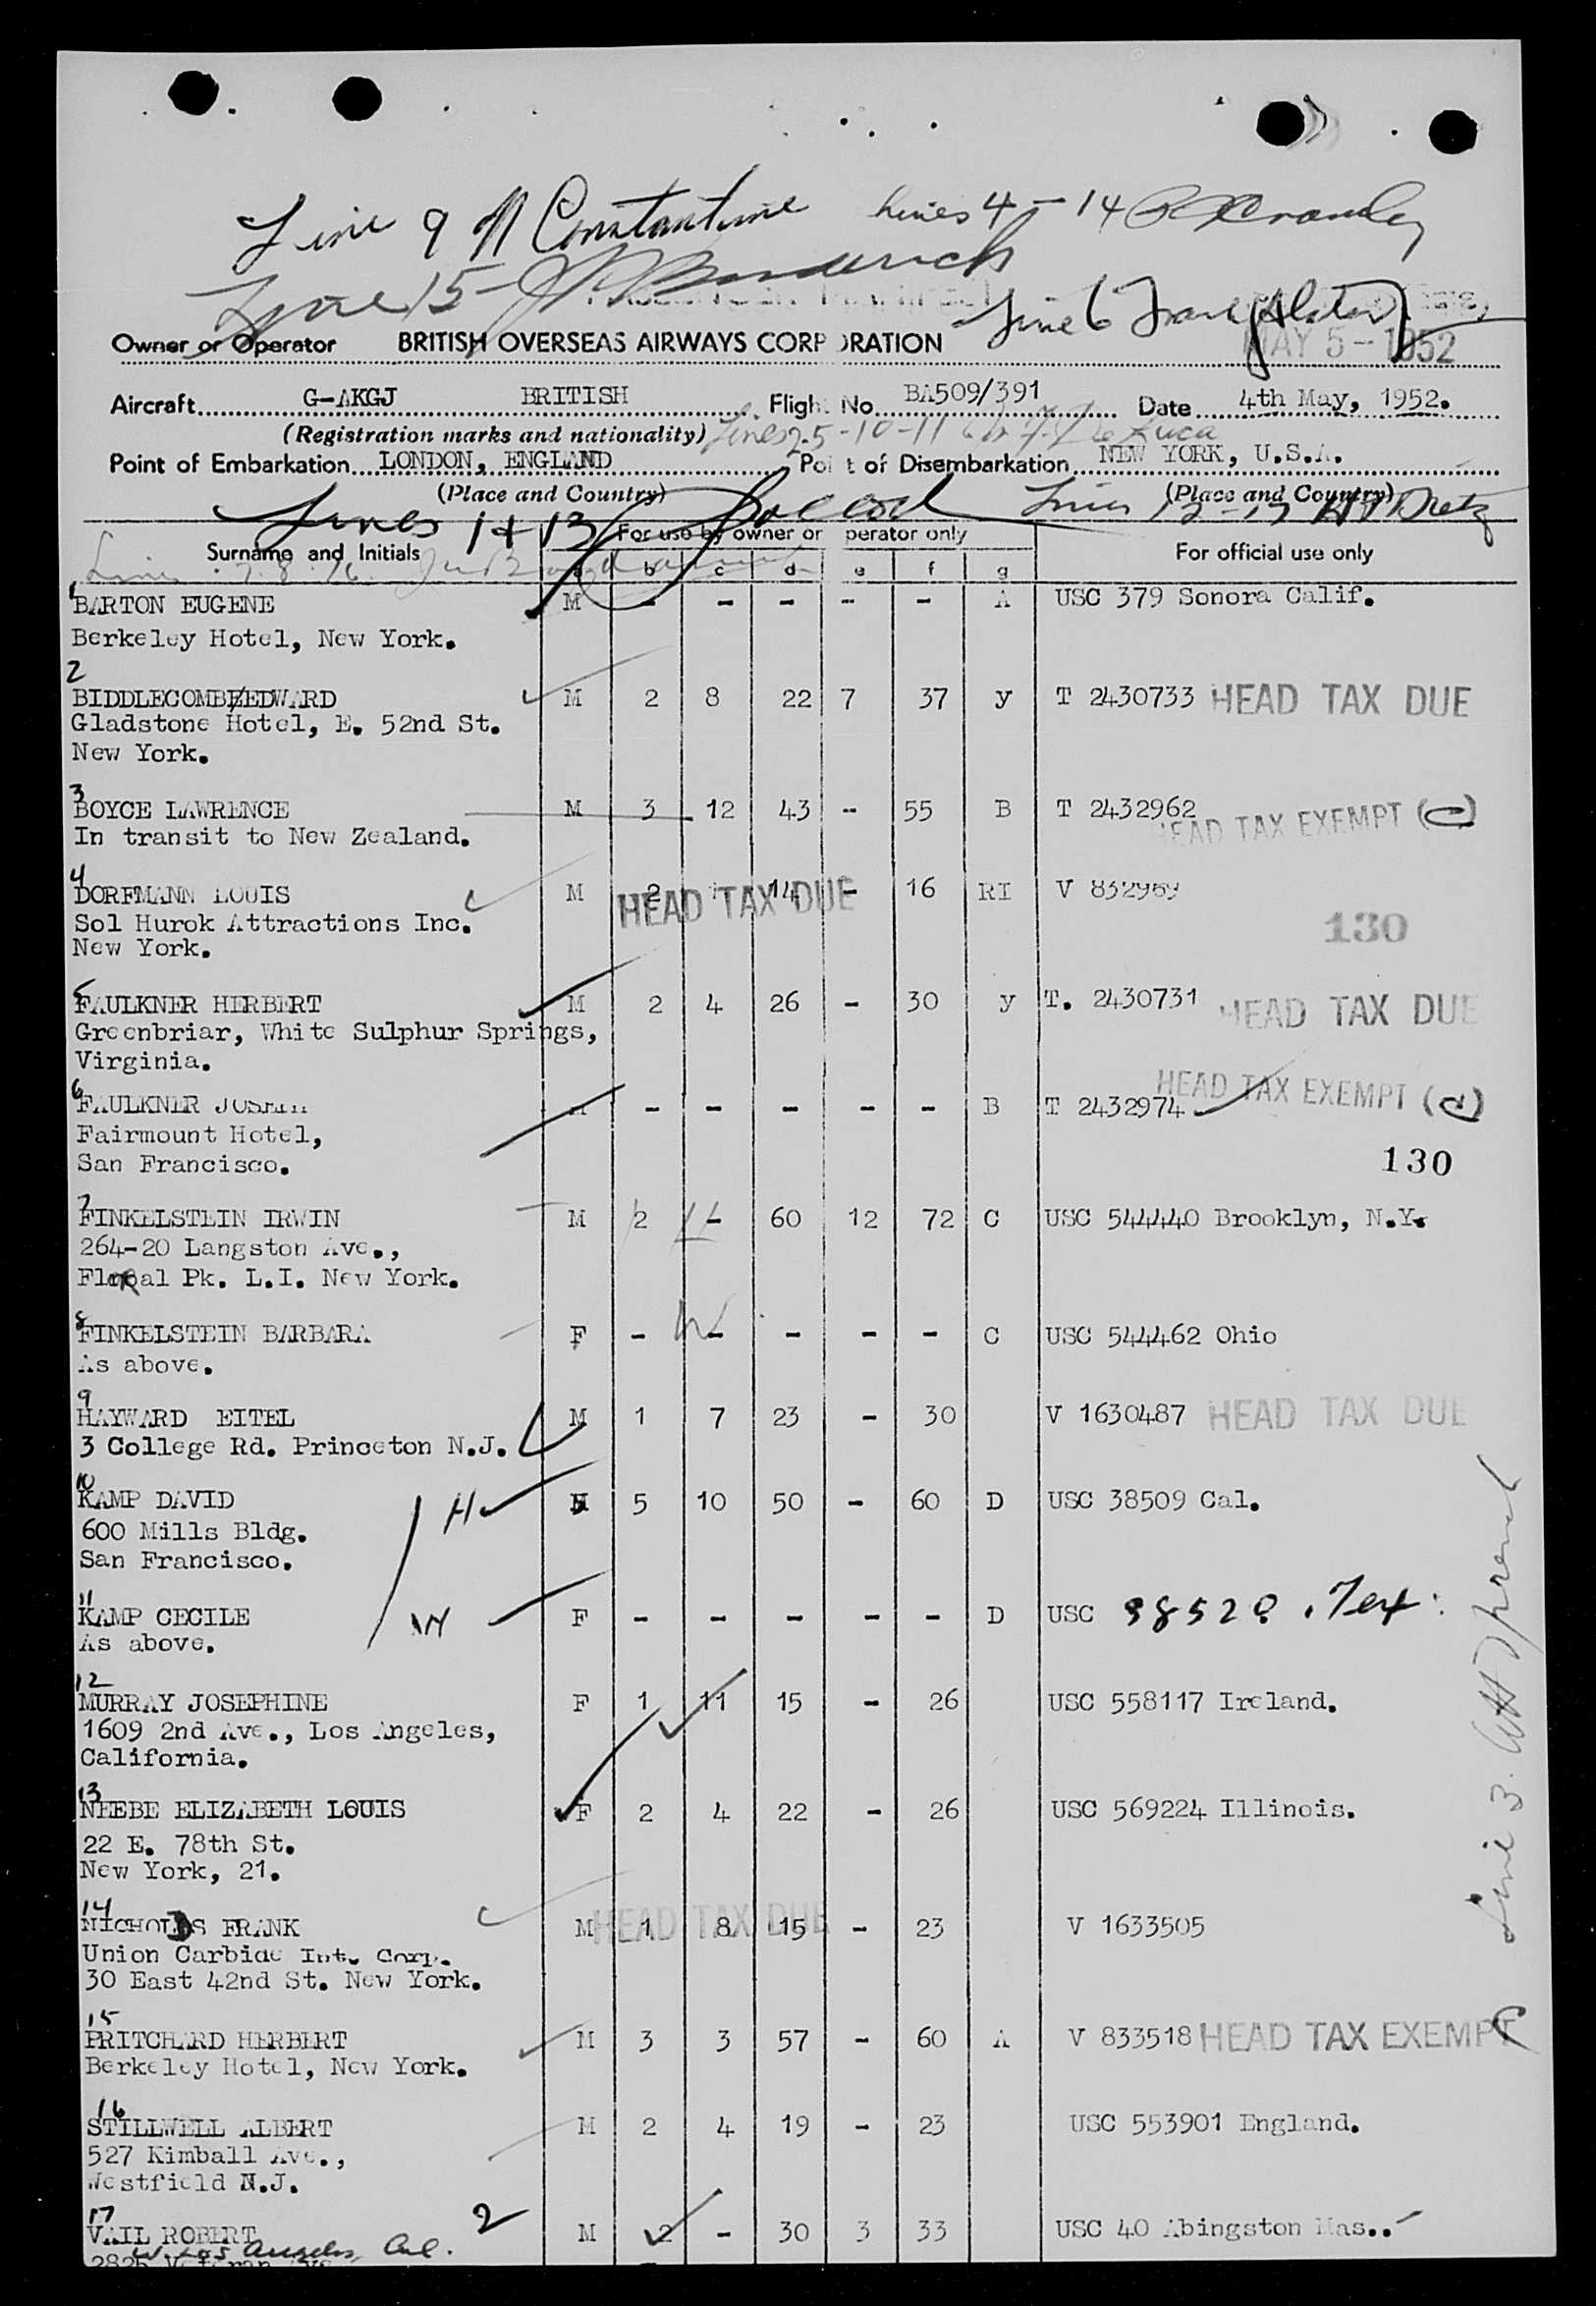 Line 9 N Constantine Lines 4-14
Line 15-
Line 6
MAY 5-1952
Owner or Operator BRITISH OVERSEAS AIRWAYS CORP RATION
Aircraft G-AKGJ BRITISH Flight No. BA509/391 Date 4th May, 1952.
(Registration marks and nationality) Lines 2-5-10-11
Point of Embarkation LONDON, ENGLAND Poi t of Disembarkation NEW YORK, U.S.A.
(Place and Country) (Place and Country)
Lines 1+13
For use by owner or perator only
Surname and Initials For official use only
Lines 7. 8. 16
b c d e f g
1
BARTON EUGENE M - - - - - A USC 379 Sonora Calif.
Berkeley Hotel, New York.
2
BIDDLECOMBE EDWARD M 2 8 22 7 37 y T 2430733 HEAD TAX DUE
Gladstone Hotel, E. 52nd St.
New York.
3
BOYCE LAWRENCE M 3 12 43 - 55 B T 2432962
HEAD TAX EXEMPT
In transit to New Zealand.
4
DORFMANN LOUIS M 2 14 - 16 RI V 832969
HEAD TAX DUE
Sol Hurok Attractions Inc.
130
New York.
5
FAULKNER HERBERT M 2 4 26 - 30 y T. 2430731 HEAD TAX DUE
Greenbriar, White Sulphur Springs,
Virginia.
6
HEAD TAX EXEMPT (d)
FAULKNER JOSEPH - - - - - B T 2432974
Fairmount Hotel,
San Francisco.
130
7
FINKELSTEIN IRWIN M 2 - 60 12 72 C USC 544440 Brooklyn, N.Y.
264-20 Langston Ave.,
Floral Pk. L.I. New York.
8
FINKELSTEIN BARBARA F - - - - - C USC 544462 Ohio
As above.
9
HAYWARD EITEL M 1 7 23 - 30 V 1630487 HEAD TAX DUE
3 College Rd. Princeton N.J.
10
KAMP DAVID H M 5 10 50 - 60 D USC 38509 Cal.
600 Mills Bldg.
San Francisco.
11
KAMP CECILE W F - - - - - D USC Tex.
As above.
12
MURRAY JOSEPHINE F 1 11 15 - 26 USC 558117 Ireland.
1609 2nd Ave., Los Angeles,
California.
13
NEEBE ELIZABETH LOUIS F 2 4 22 - 26 USC 569224 Illinois.
22 E. 78th St.
New York, 21.
14
NICHOLDS FRANK M 1 8 15 - 23 V 1633505
HEAD TAX DUE
Union Carbide Int. Corp.
30 East 42nd St. New York.
15
PRITCHARD HERBERT M 3 3 57 - 60 A V 833518 HEAD TAX EXEMPT
Berkeley Hotel, New York.
16
STILLWELL ALBERT M 2 4 19 - 23 USC 553901 England.
527 Kimball Ave.,
Westfield N.J.
17
VAIL ROBERT 2 M 2 - 30 3 33 USC 40 Abingston Mas..
W. Los Angeles, Cal.
Line 3.